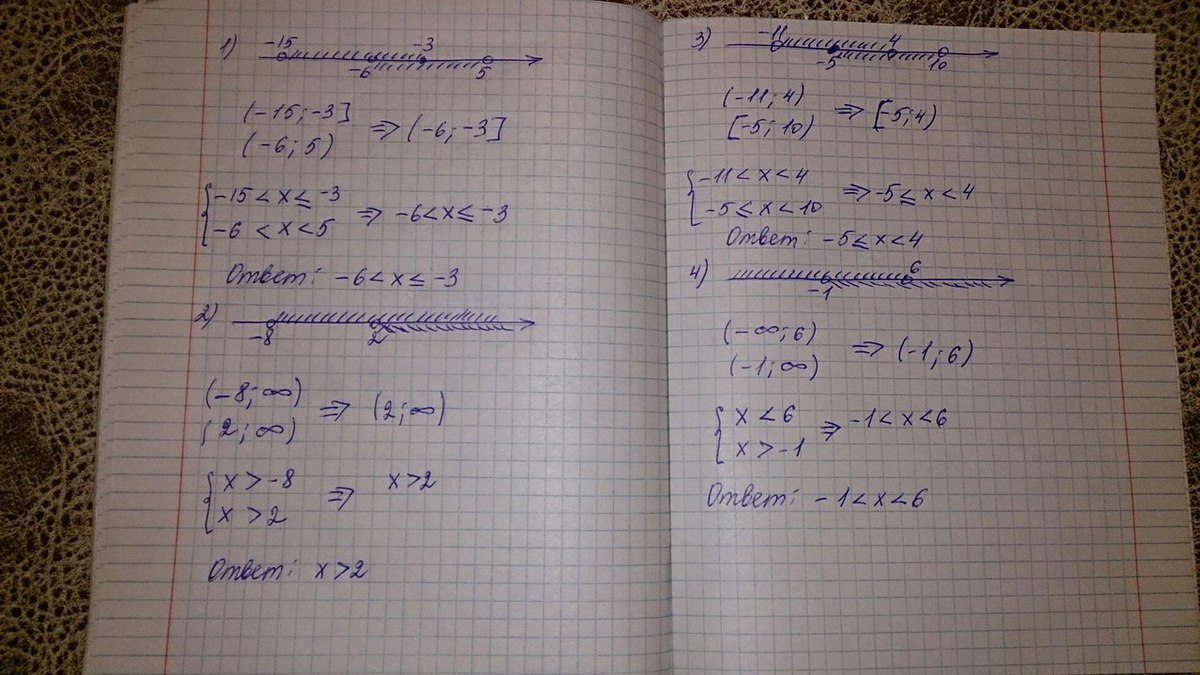 1) -15 -3
-6 5
(-15; -3]
(-6; 5) ⇒ (-6; -3]
{ -15 < x ≤ -3
-6 < x < 5 ⇒ -6 < x ≤ -3
Ответ: -6 < x ≤ -3
2)
-8 2
(-8; ∞)
(2; ∞) ⇒ (2; ∞)
{ x > -8
x > 2 ⇒ x > 2
Ответ: x > 2
3) -11 4
-5 10
(-11; 4)
[-5; 10) ⇒ [-5; 4)
{ -11 < x < 4
-5 ≤ x < 10 ⇒ -5 ≤ x < 4
Ответ: -5 ≤ x < 4
4) 6
-1
(-∞; 6)
(-1; ∞) ⇒ (-1; 6)
{ x < 6
x > -1 ⇒ -1 < x < 6
Ответ: -1 < x < 6